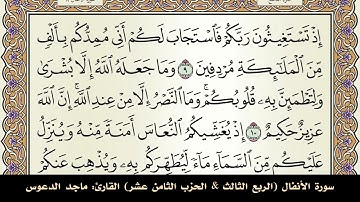 إِذْ تَسْتَغِيثُونَ رَبَّكُمْ فَٱسْتَجَابَ لَكُمْ أَنِّى مُمِدُّكُم بِأَلْفٍ
مِّنَ ٱلْمَلَٰٓئِكَةِ مُرْدِفِينَ ٩ وَمَا جَعَلَهُ ٱللَّهُ إِلَّا بُشْرَىٰ
وَلِتَطْمَئِنَّ بِهِۦ قُلُوبُكُمْ ۚ وَمَا ٱلنَّصْرُ إِلَّا مِنْ عِندِ ٱللَّهِ ۚ إِنَّ ٱللَّهَ
عَزِيزٌ حَكِيمٌ ١٠ إِذْ يُغَشِّيكُمُ ٱلنُّعَاسَ أَمَنَةً مِّنْهُ وَيُنَزِّلُ
عَلَيْكُم مِّنَ ٱلسَّمَآءِ مَآءً لِّيُطَهِّرَكُم بِهِۦ وَيُذْهِبَ عَنكُمْ
سورة الأنفال (الربع الثالث & الحزب الثامن عشر) القارئ: ماجد الدعوس